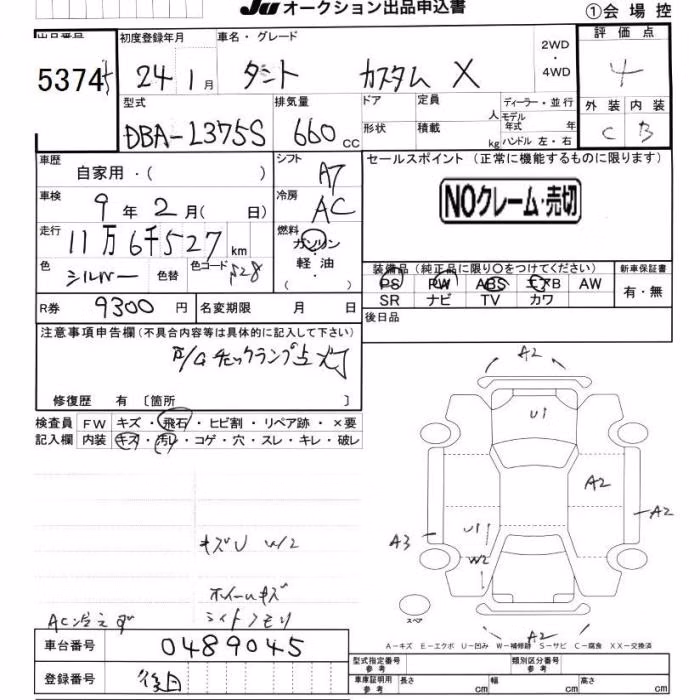 JU オークション出品申込書
①会場控
出品番号 初度登録年月 車名・グレード 2WD・4WD 評価点
5374 24 1月 タント カスタム X 4
型式 排気量 ドア 定員 人 ディーラー・並行 外装 内装
DBA-L375S 660 cc 形状 積載 kg モデル年式 年 ハンドル 左・右 C B
車歴 自家用・( ) シフト AT セールスポイント(正常に機能するものに限ります)
車検 9年 2月( 日) 冷房 AC NOクレーム・売切
走行 11万6千527km 燃料 ガソリン・軽・油 ( )
色 シルバー 色替 色コード S28 装備品(純正品に限り○をつけてください) 新車保証書
PS PW ABS エアB AW 有・無
R券 9300円 名変期限 月 日 SR ナビ TV カワ
後日品
注意事項申告欄(不具合内容等は具体的に記入して下さい)
チェックランプ点灯
修復歴 有〔箇所 〕
検査員 FW キズ・飛石・ヒビ割・リペア跡・×要
記入欄 内装 キズ・汚レ・コゲ・穴・スレ・キレ・破レ
A2
U1
A2
A2
A3 U1
W2
キズU W2
ホイールキズ
AC冷えず ライトクモリ
スペア
A2
A-キズ E-エクボ U-凹み W-補修跡 S-サビ C-腐食 XX-交換済
車台番号 0489045
型式指定番号 参考 類別区分番号 参考
登録番号 後日
車庫証明用 参考 長さ cm 幅 cm 高さ cm